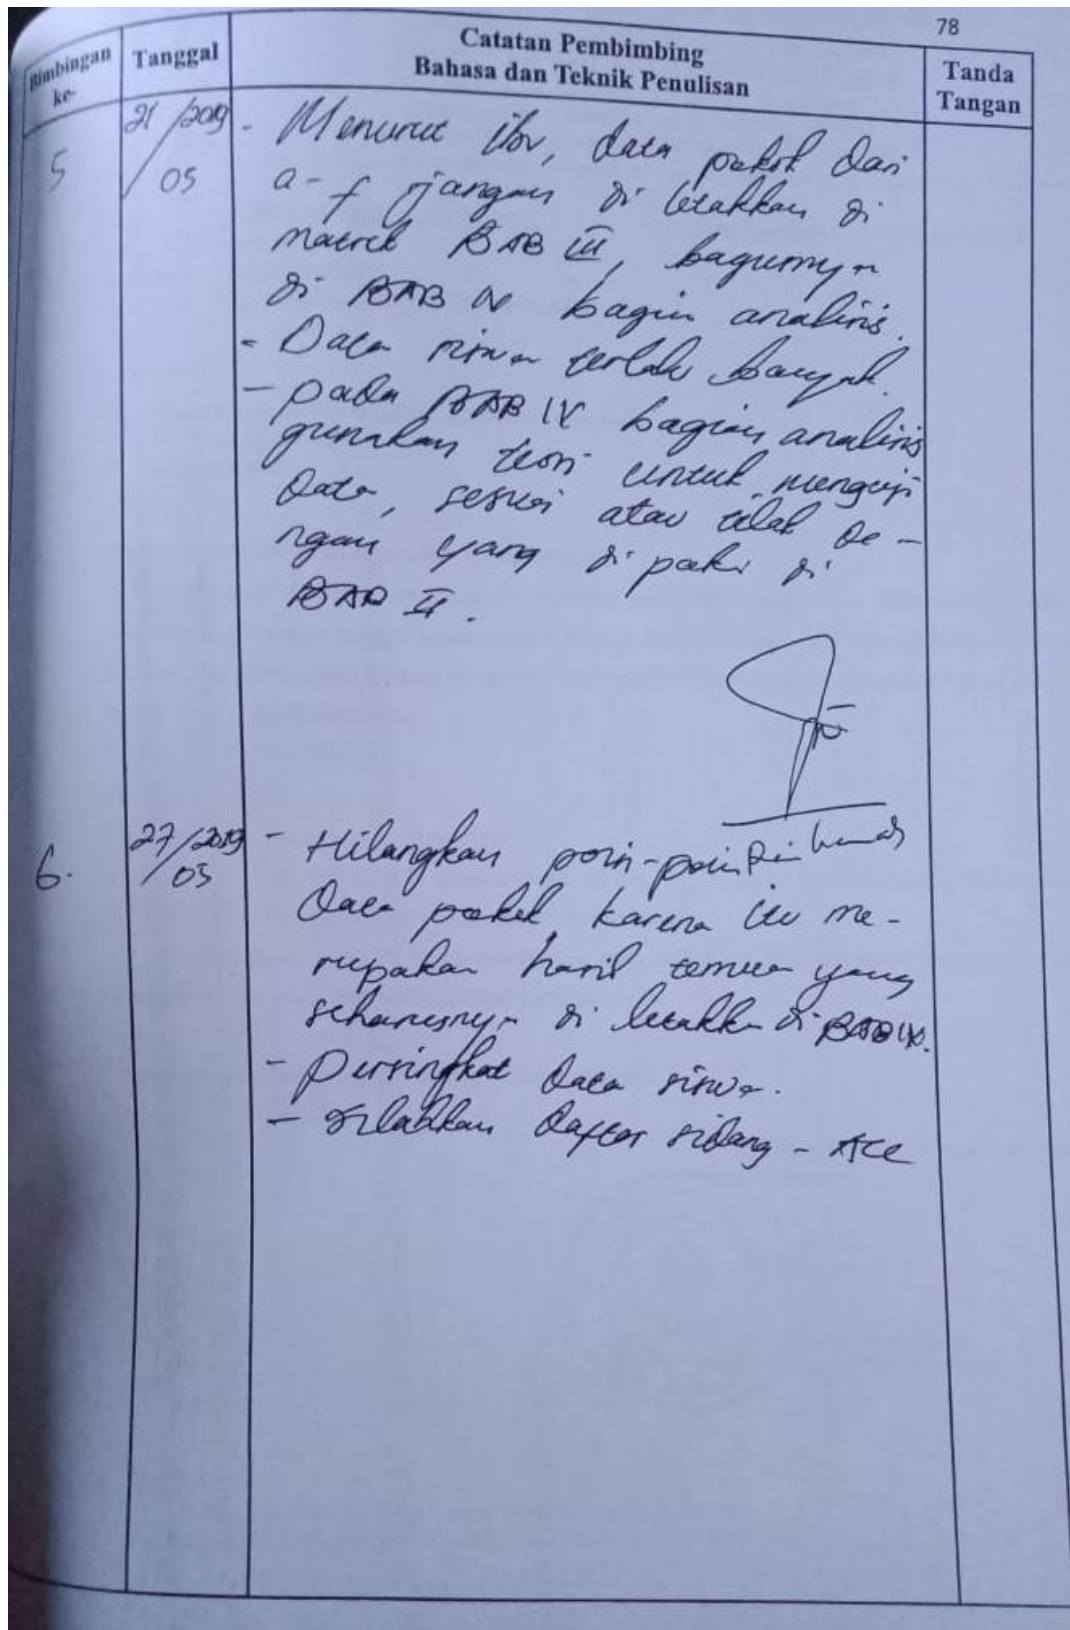 78
Bimbingan ke-
Tanggal
Catatan Pembimbing
Bahasa dan Teknik Penulisan
Tanda
Tangan
5
21/2019
05
- Menurut ibu, data pokok dari
a-f jangan di letakkan di
BAB III, bagusnya
di BAB IV bagian analisis.
- Data siswa terlalu banyak.
- pada BAB IV bagian analisis
gunakan teori untuk menguji
data, sesuai atau tidak de-
ngan yang di pakai di
BAB II.
6.
27/2019
05
- Hilangkan poin-poin
data pokok karena itu me-
rupakan hasil temuan yang
seharusnya di letakkan di BAB IV.
- Persingkat data siswa.
- Silahkan daftar sidang - Acc